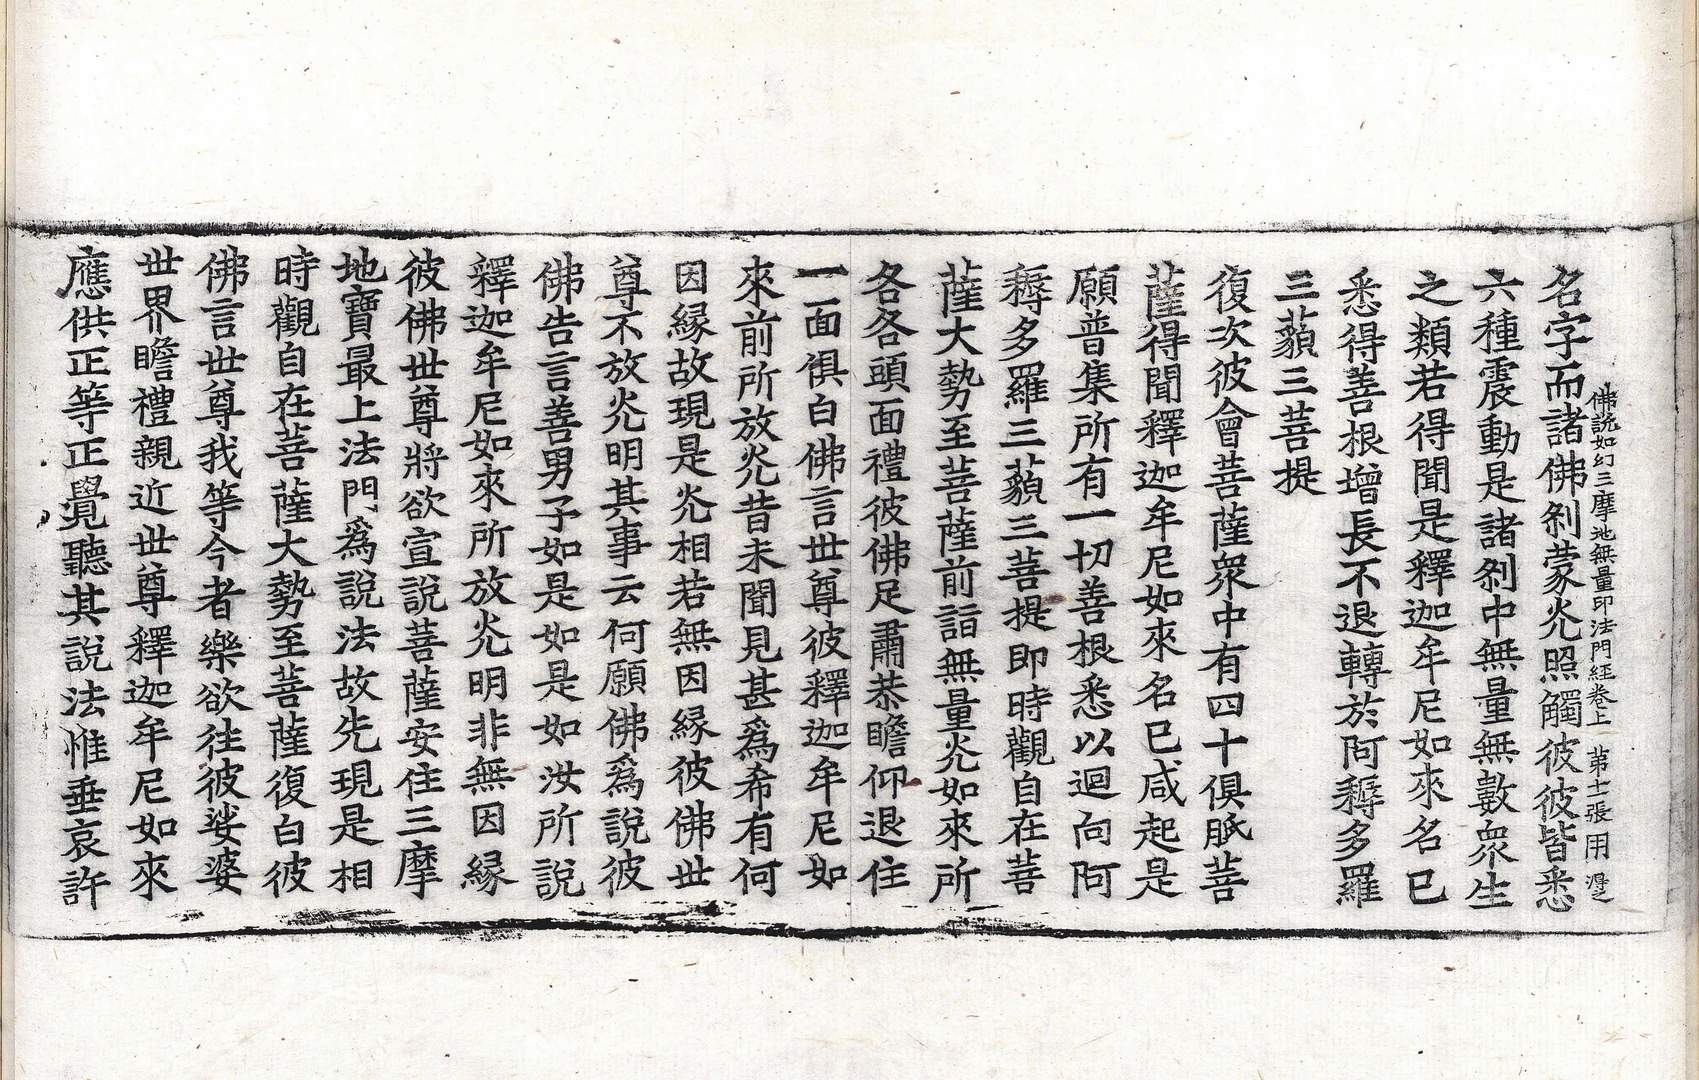 佛說如幻三摩地無量印法門經卷上 第十一張 用
名字而諸佛剎蒙光照觸彼彼皆悉
六種震動是諸剎中無量無數衆生
之類若得聞是釋迦牟尼如來名已
悉得善根增長不退轉於阿耨多羅
三藐三菩提
復次彼會菩薩衆中有四十俱胝菩
薩得聞釋迦牟尼如來名已咸起是
願普集所有一切善根悉以迴向阿
耨多羅三藐三菩提即時觀自在菩
薩大勢至菩薩前詣無量光如來所
各各頭面禮彼佛足肅恭瞻仰退住
一面俱白佛言世尊彼釋迦牟尼如
來前所放光昔未聞見甚爲希有何
因緣故現是光相若無因緣彼佛世
尊不放光明其事云何願佛爲說彼
佛告言善男子如是如是如汝所說
釋迦牟尼如來所放光明非無因緣
彼佛世尊將欲宣說菩薩安住三摩
地寶最上法門爲說法故先現是相
時觀自在菩薩大勢至菩薩復白彼
佛言世尊我等今者樂欲往彼娑婆
世界瞻禮親近世尊釋迦牟尼如來
應供正等正覺聽其說法惟垂哀許